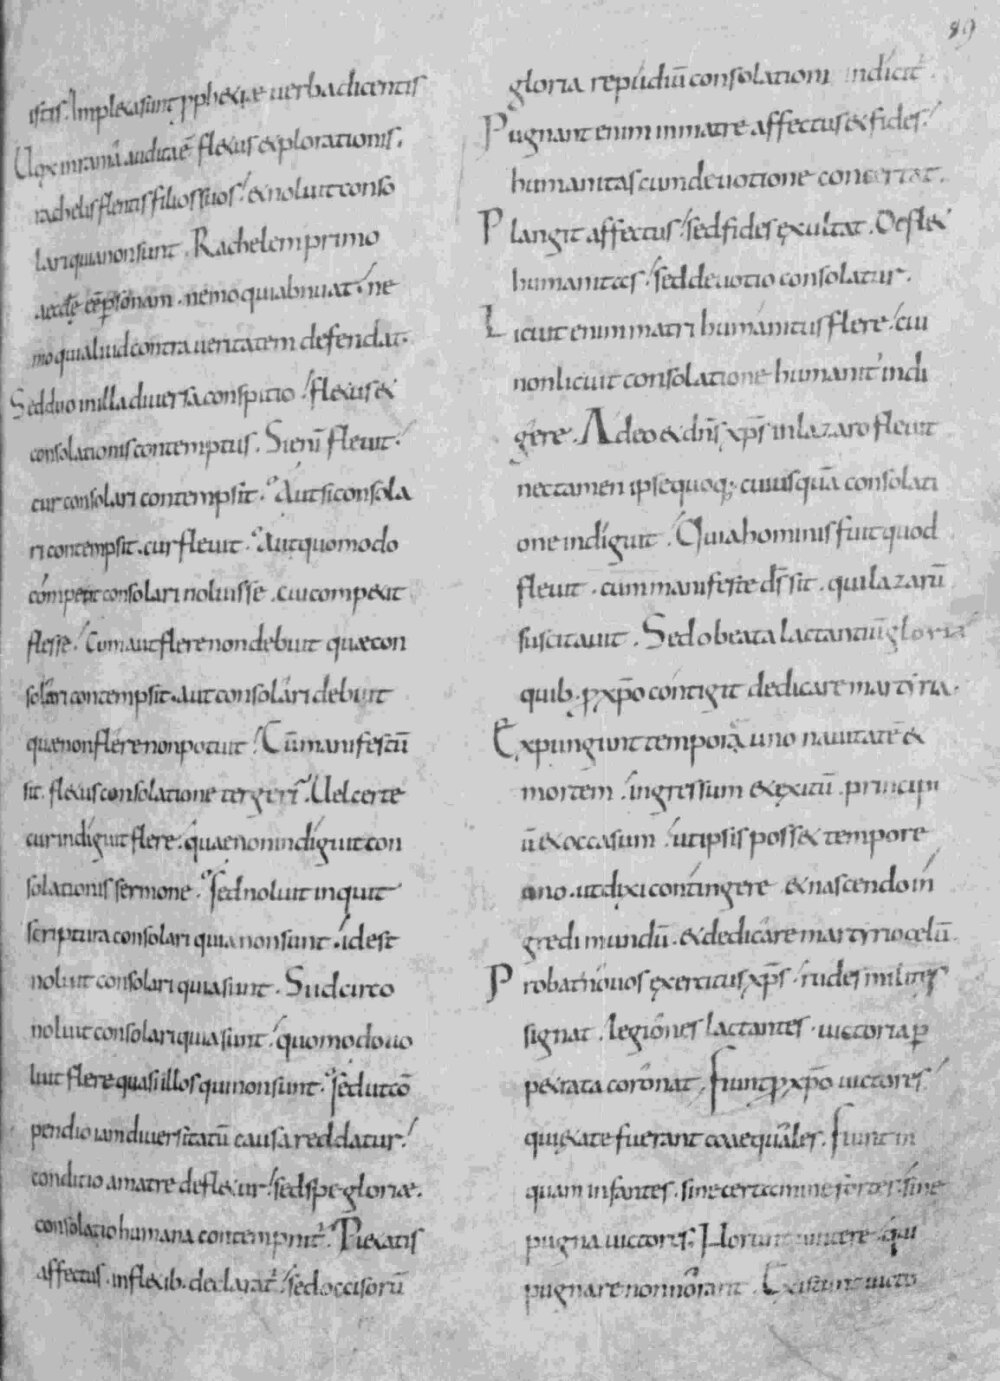 89
istis. Impletasunt pphetiae uerba dicentis
Uox inramā auditaē fletus etplorationis.
rachelis flentis filios suos. et noluit conso
lari quia non sunt. Rachelem primo
nemo quiabnuat. ne
mo quialiud contra ueritatem defendat.
Sed duo inilla diuersa conspitio. fletus et
consolationis contemptus. Sienī fleuit.
cur consolari contempsit. Aut si consola
ri contempsit. cur fleuit. Aut quomodo
competit consolari noluisse. cui competit
flesse. Cum aut flere non debuit quae con
solari contempsit. aut consolari debuit
quae non flere non potuit. Cū manifestū
sit. fletus consolatione tergeri. Uel certe
cur indiguit flere. quae non indiguit con
solationis sermone. sed noluit inquit
scriptura consolari quia non sunt. idest
noluit consolari quia sunt. Sud circo
noluit consolari quia sunt. quomodo uo
luit flere quasi illos qui non sunt. sed ut cō
pendio iam diuersitatū causa reddatur.
conditio a matre defletur. sed spe gloriae.
consolatio humana contempnit. Pietatis
affectus. inflexib. declarat. sed occisorū
gloria repudiū consolationi indicit.
Pugnant enim inmatre affectus et fides.
humanitas cum deuotione concertat.
Plangit affectus. sed fides exultat. Deflet
humanitas. sed deuotio consolatur.
Licuit enim matri humanitus flere. cui
non licuit consolatione humanit indi
gere. Adeo et dn̄s xp̄s in lazaro fleuit
nec tamen ipse quoq; cuiusquā consolati
one indiguit. Quia hominis fuit quod
fleuit. cum manifeste ds̄ sit. qui lazarū
suscitauit. Sed o beata lactantiū gloria
quib. p xp̄o contigit dedicare martiria.
Expungiunt tempora uno nauitatē et
mortem. ingressum et exitū. principi
ū et occasum. ut ipsis posset tempore
uno. ut dixi contingere et nascendo in
gredi mundū. et dedicare martyrio celū.
Probat nouos exercitus xp̄s. rudes milites
signat. legiones lactantes. uictoria p
petrata coronat. fiunt p xp̄o uictores.
qui etate fuerant coaequales. fiunt in
quam infantes. sine certamine fortes. sine
pugna uictores. Norunt uincere. qui
pugnare non norant. Existunt uicto